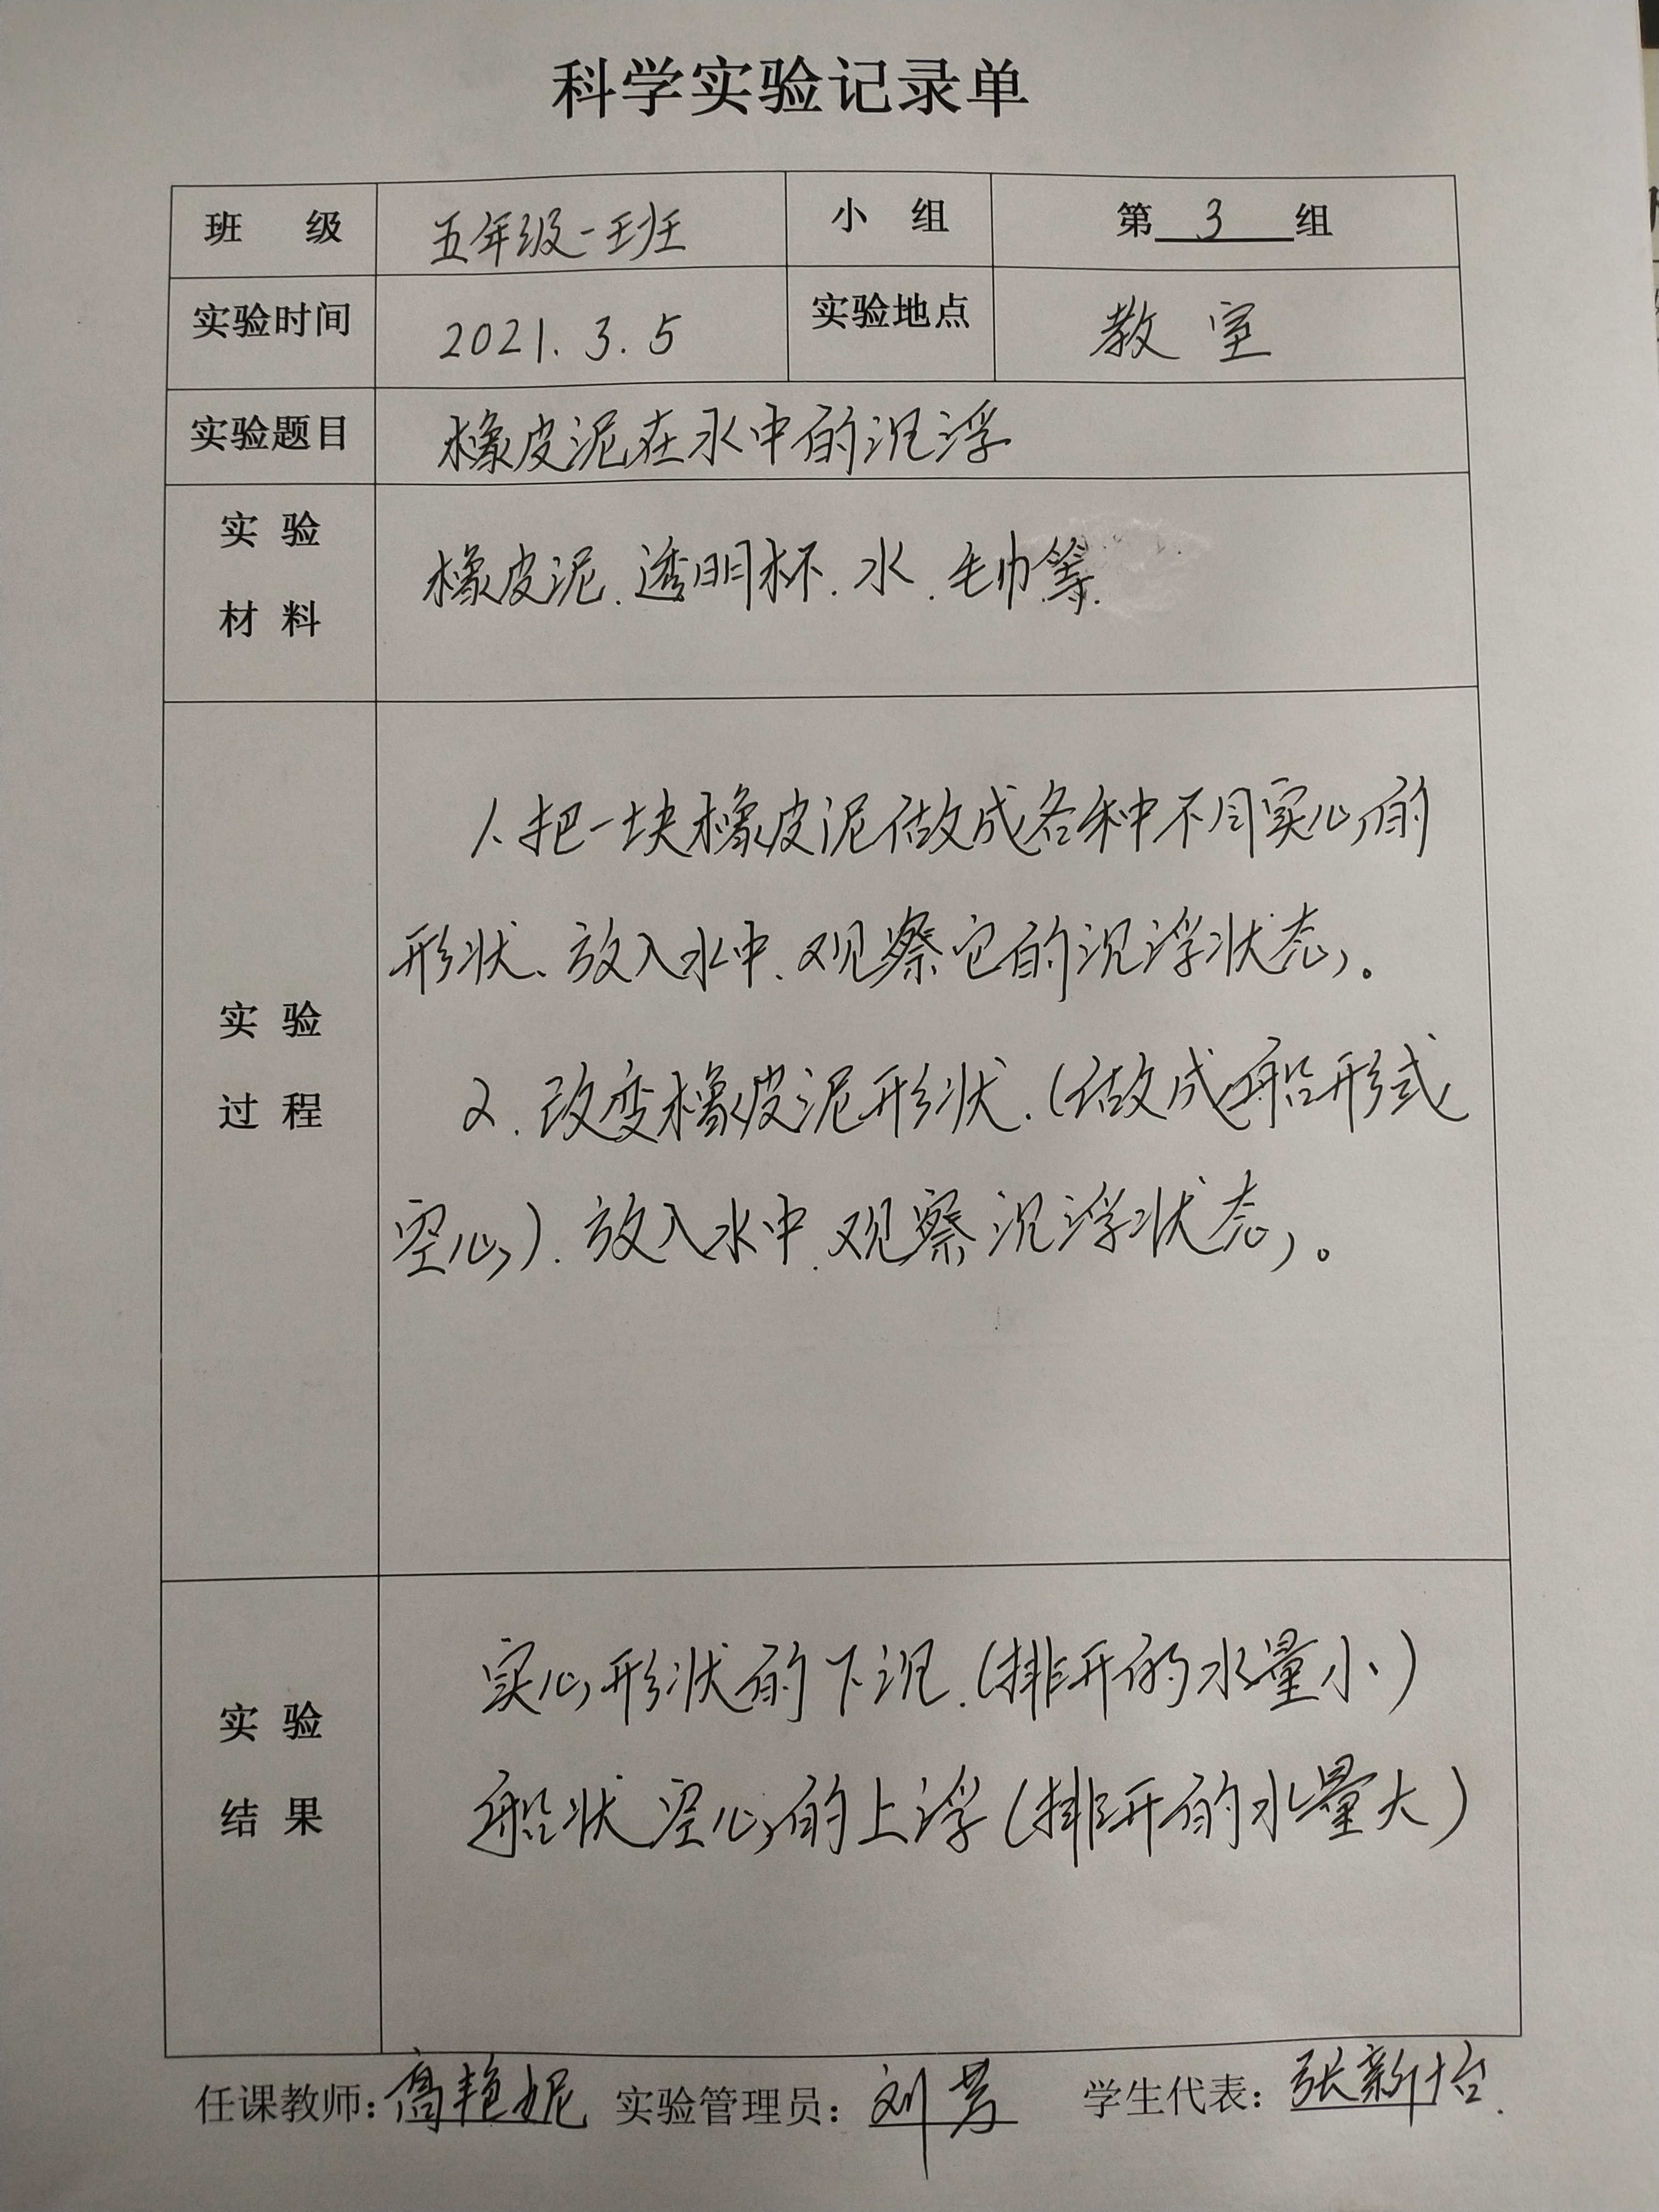 科学实验记录单
班 级 五年级一班 小 组 第 3 组
实验时间 2021.3.5 实验地点 教室
实验题目 橡皮泥在水中的沉浮
实 验
材 料
橡皮泥.透明杯.水.毛巾等.
实 验
过 程
1.把一块橡皮泥做成各种不同实心的
形状、放入水中、观察它的沉浮状态。
2.改变橡皮泥形状.(做成船形式
空心).放入水中.观察沉浮状态。
实 验
结 果
实心形状的下沉.(排开的水量小)
船状空心的上浮(排开的水量大)
任课教师:高艳妮 实验管理员:刘芳 学生代表:张新怡.